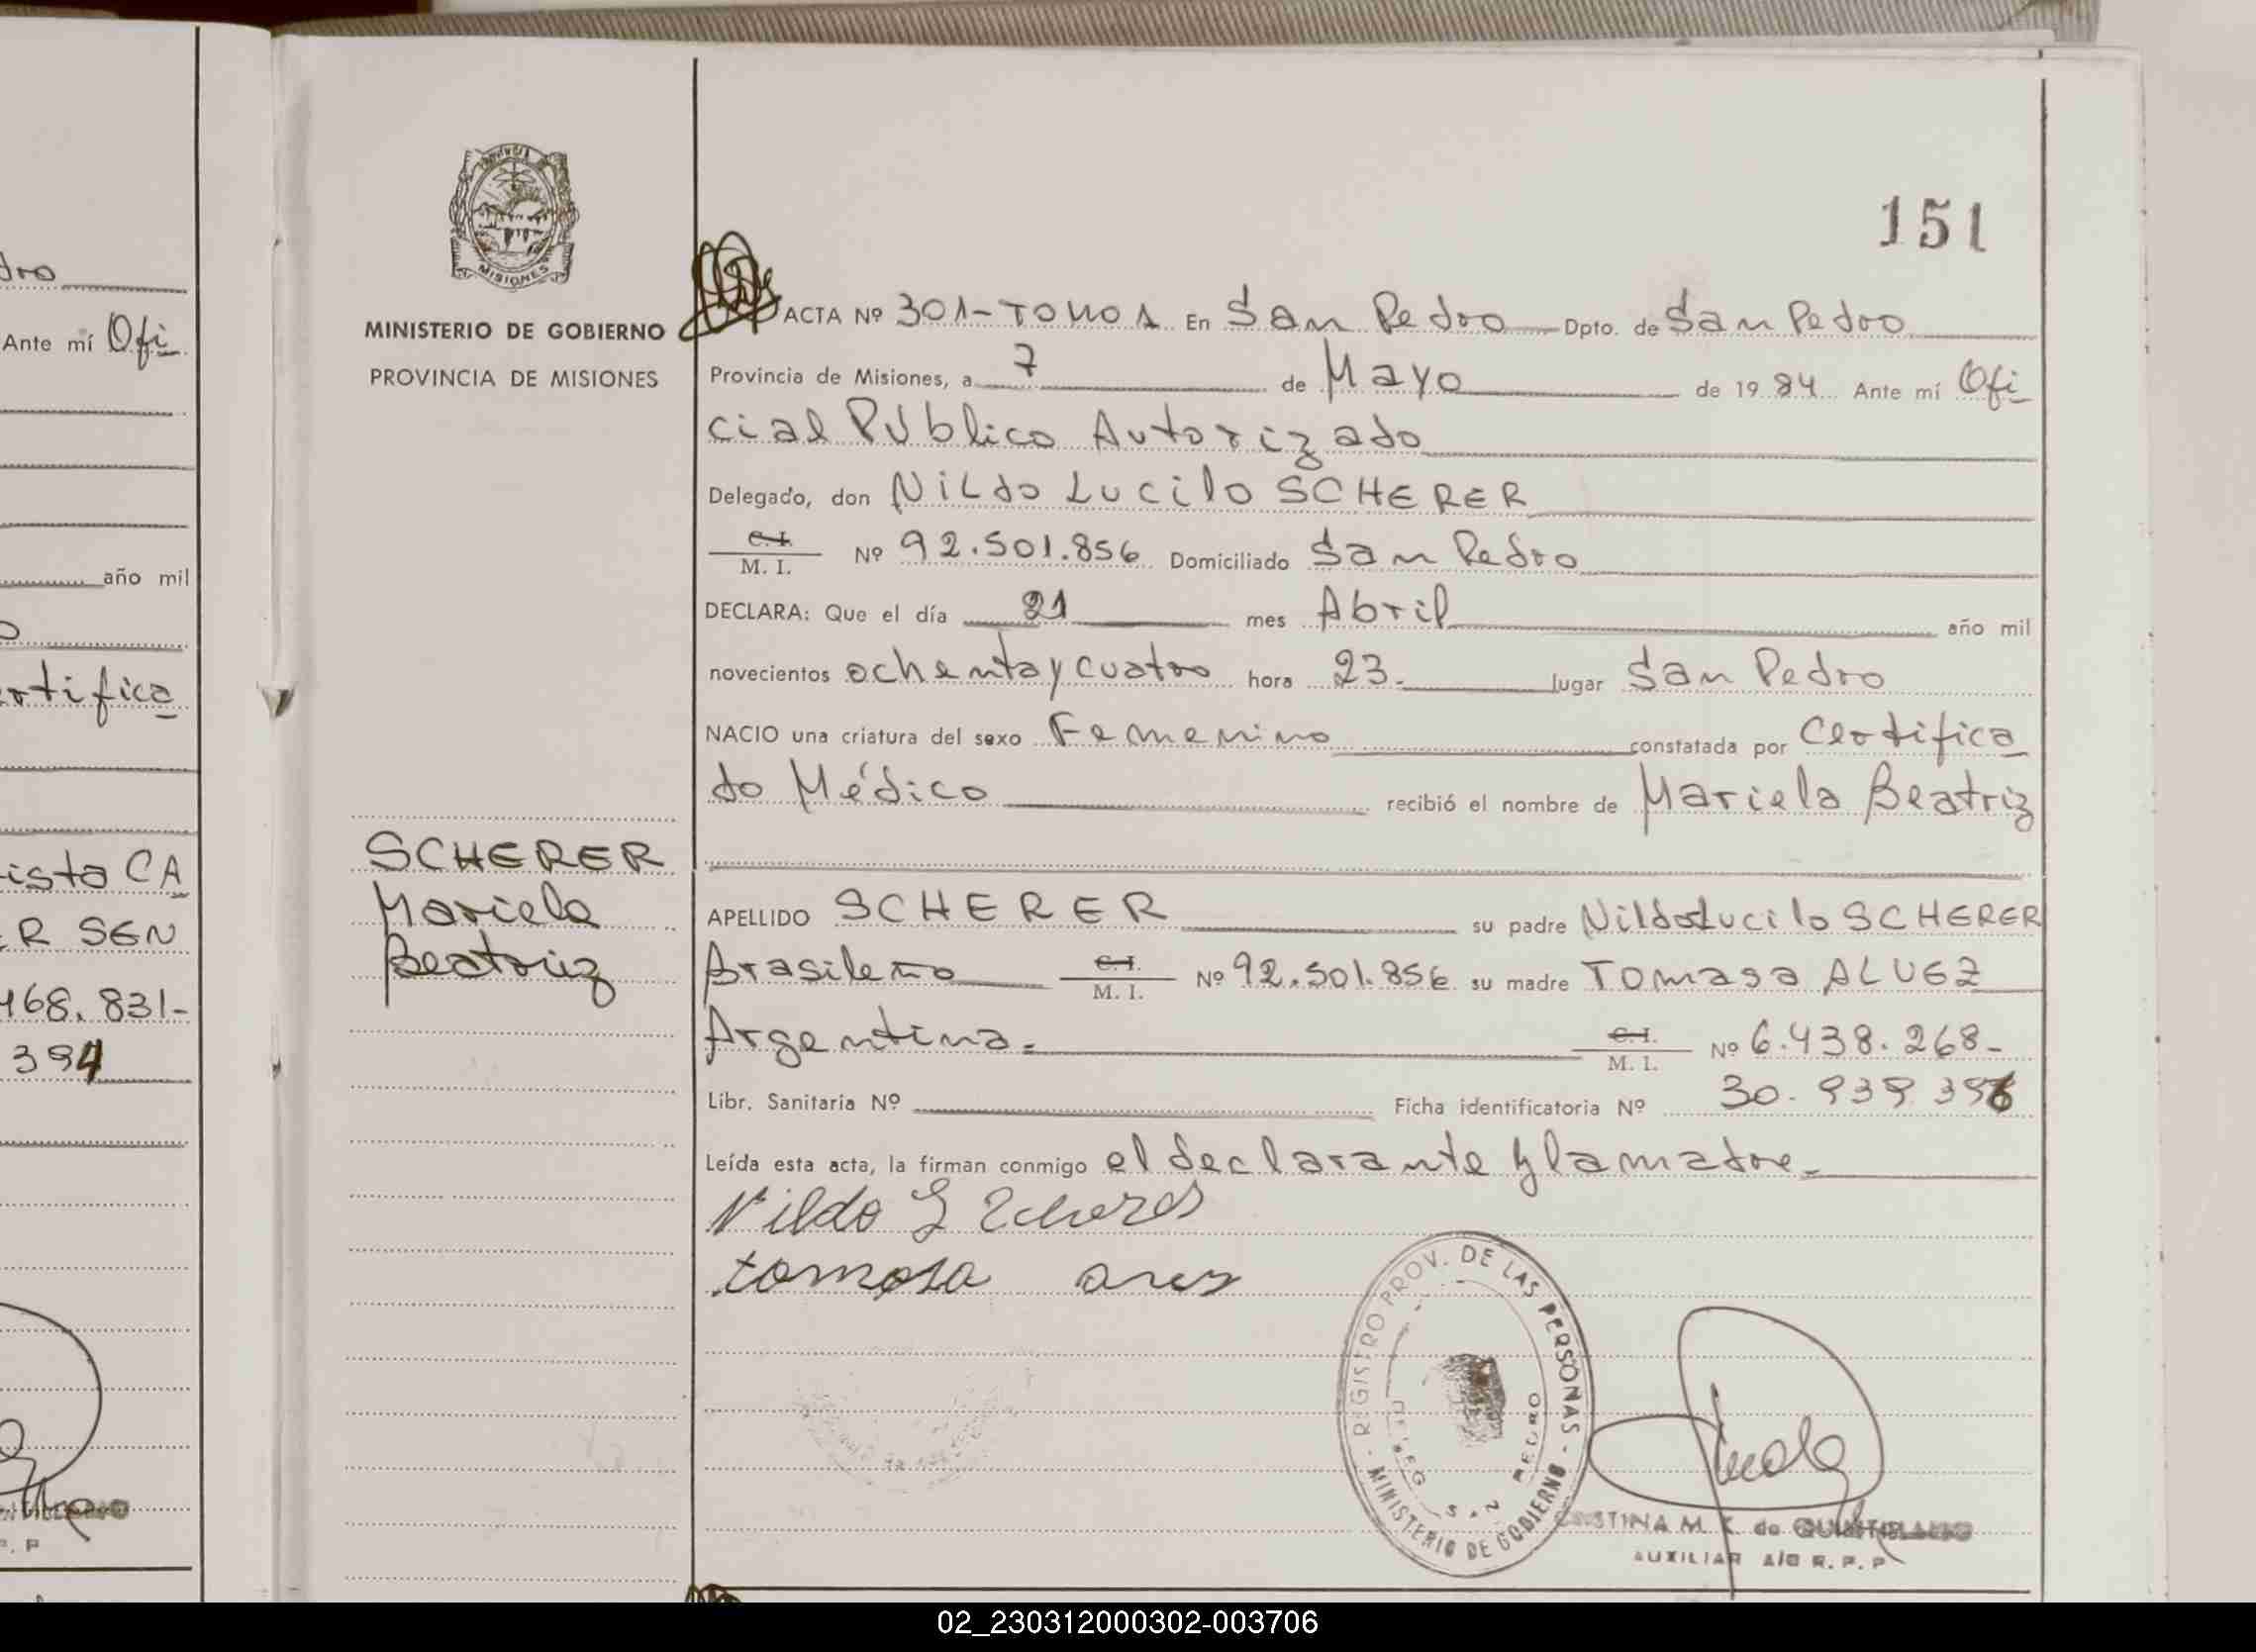 dro
Ante mí Ofi
año mil
o
ertifica
ista CA
R SEN
468.831-
394
P. P
PROVINCIA
MISIONES
MINISTERIO DE GOBIERNO
PROVINCIA DE MISIONES
SCHERER
Mariela
Beatriz
151
ACTA Nº 301-TOMO 1 En San Pedro Dpto. de San Pedro
Provincia de Misiones, a 7 de Mayo de 19 84 Ante mí Ofi
cial Público Autorizado
Delegado, don Nildo Lucilo SCHERER
C. I.
M. I. Nº 92.501.856 Domiciliado San Pedro
DECLARA: Que el día 21 mes Abril año mil
novecientos ochenta y cuatro hora 23.- lugar San Pedro
NACIO una criatura del sexo Femenino constatada por Certifica
do Médico recibió el nombre de Mariela Beatriz
APELLIDO SCHERER su padre Nildo Lucilo SCHERER
Brasileño C. I. M. I. Nº 92.501.856 su madre Tomasa ALVEZ
Argentina.- C. I. M. I. Nº 6.438.268-
Libr. Sanitaria Nº Ficha identificatoria Nº 30.939.396
Leída esta acta, la firman conmigo el declarante y la madre.-
Nildo L Scherer
tomasa
REGISTRO PROV. DE LAS PERSONAS - MINISTERIO DE GOBIERNO -
DELEG
PEDRO
CRISTINA M. K. de
AUXILIAR A/C R. P. P
02_230312000302-003706